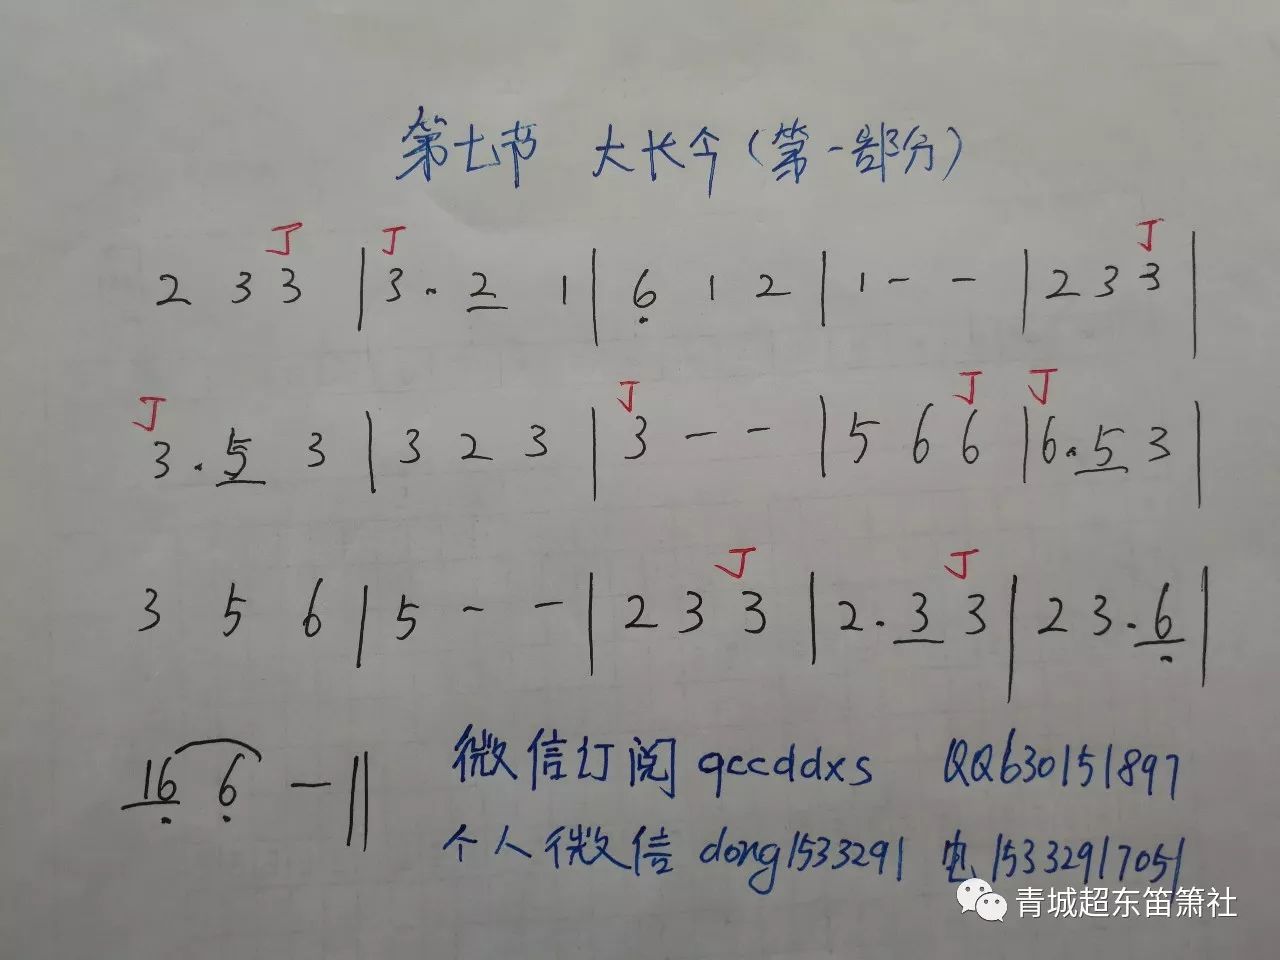 第七节 大长今（第一部分）
J J J
2 3 3 | 3 . 2 1 | 6 1 2 | 1 - - | 2 3 3 |
J J J J
3 . 5 3 | 3 2 3 | 3 - - | 5 6 6 | 6 . 5 3 |
J J
3 5 6 | 5 - - | 2 3 3 | 2 . 3 3 | 2 3 . 6 |
16 6 - ||
微信订阅 qccddxs QQ630151897
个人微信 dong1533291 电15332917051
青城超东笛箫社